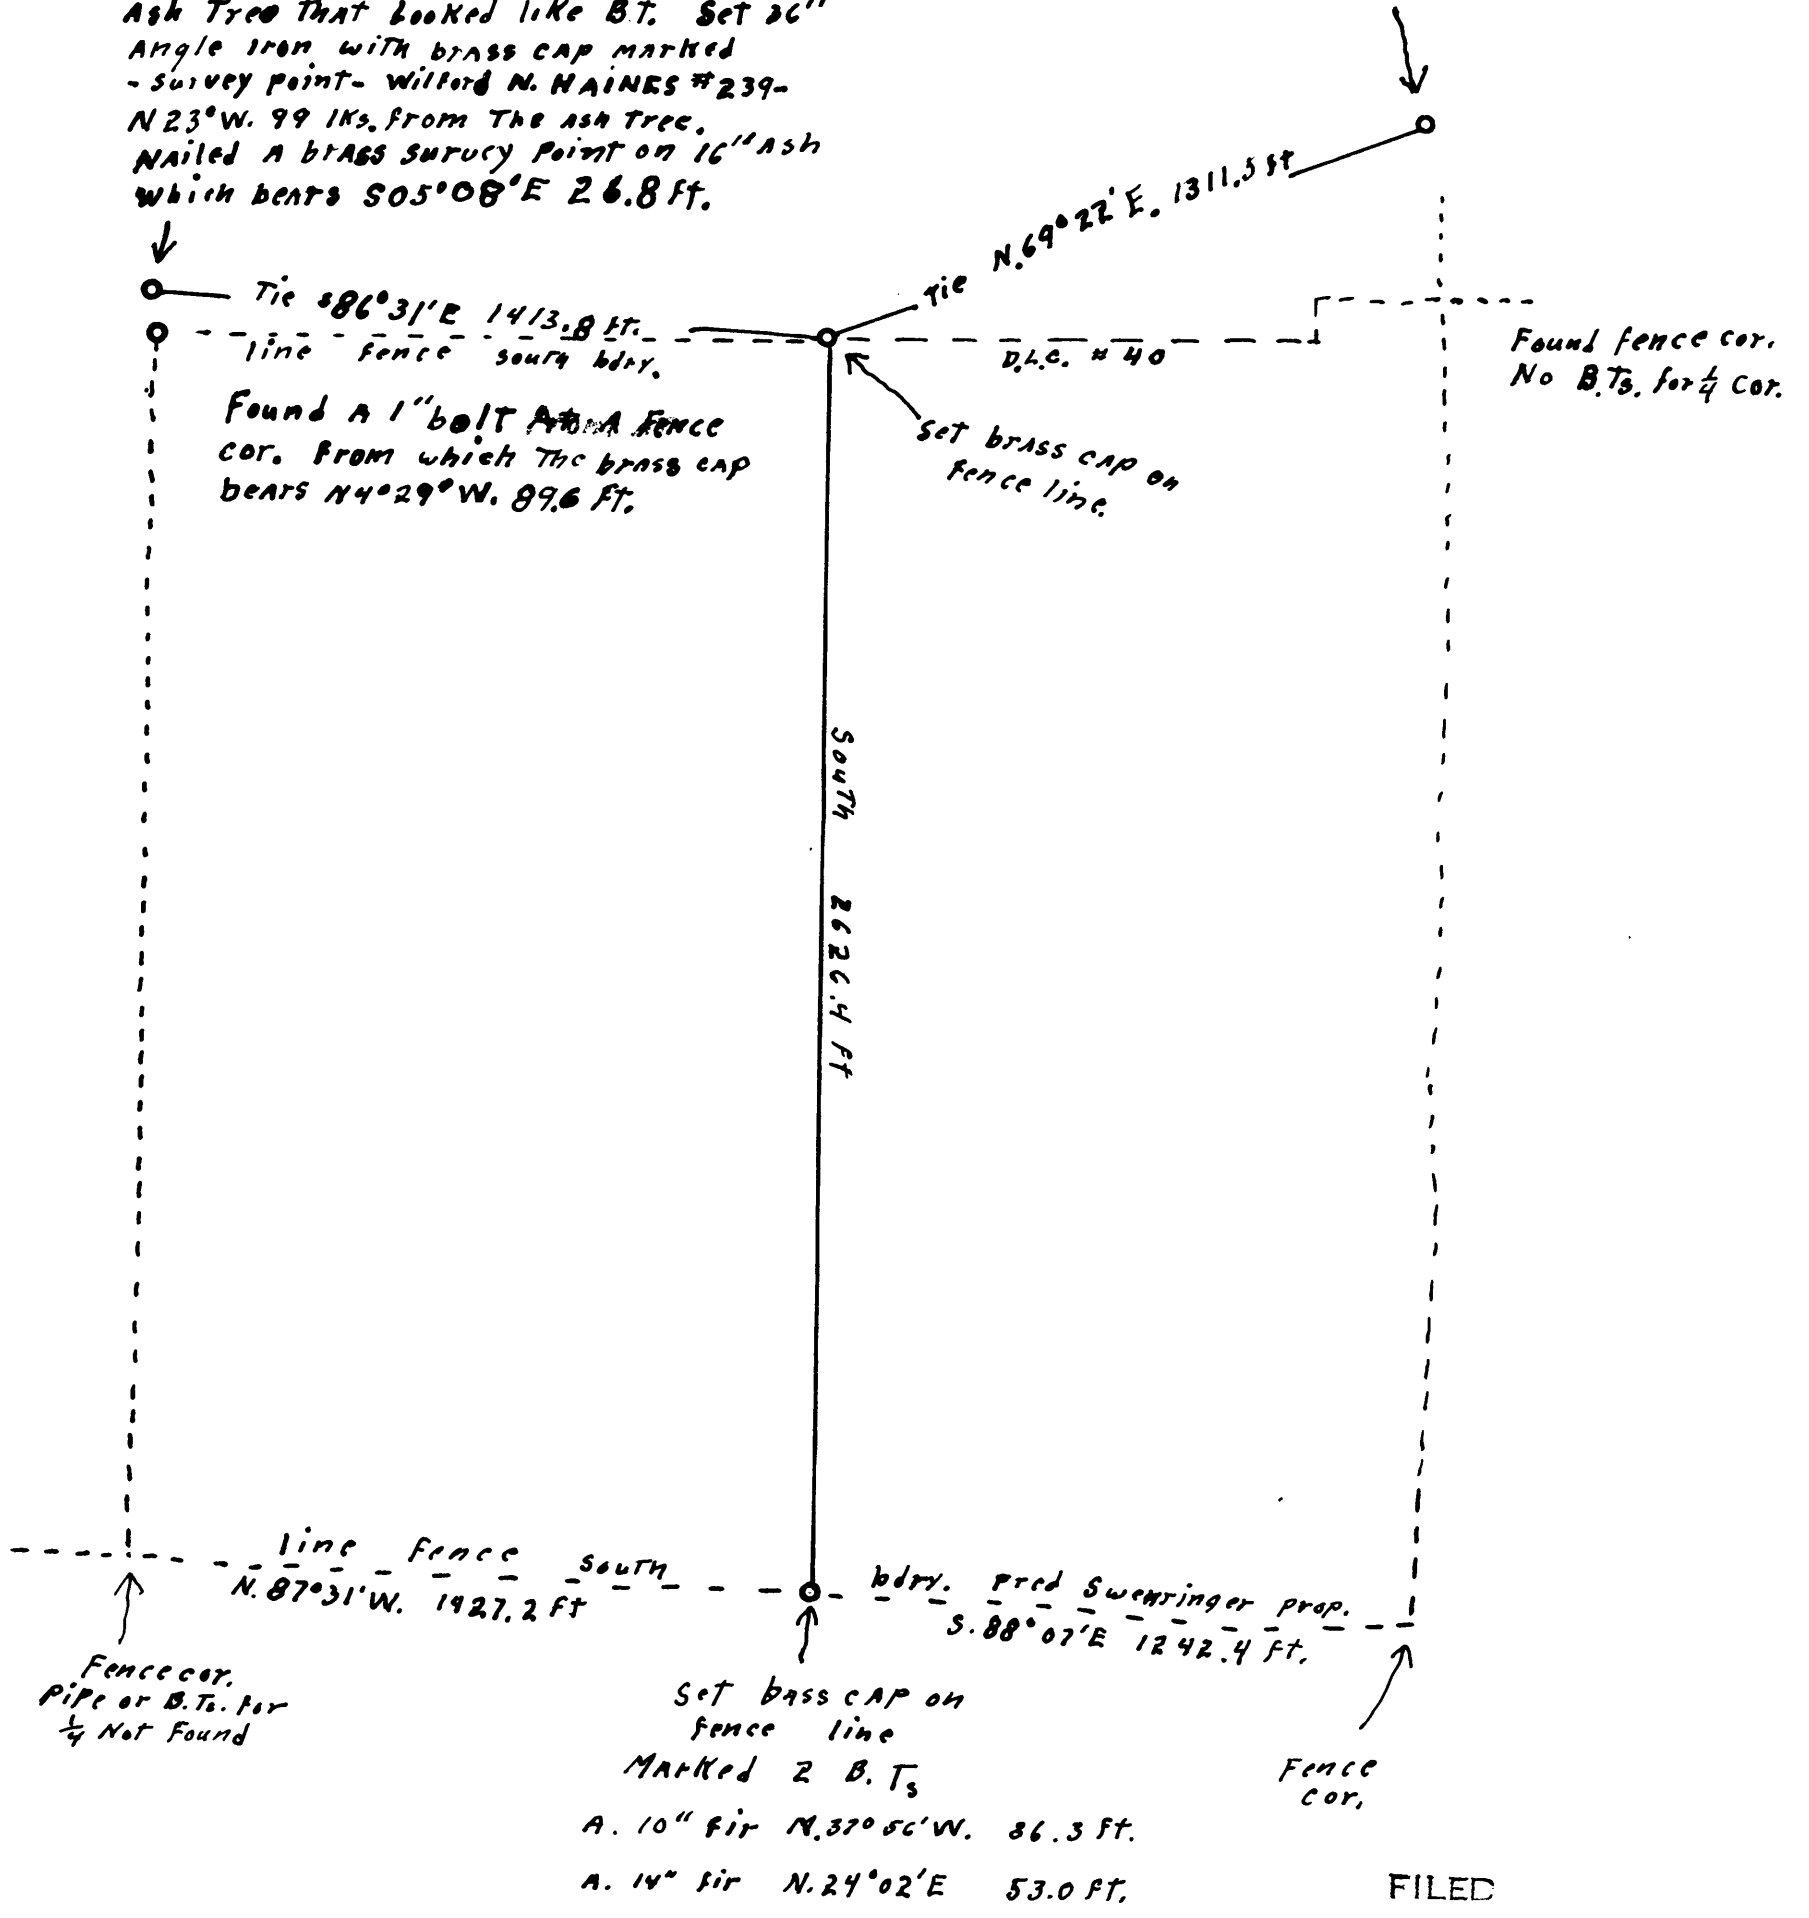 Ash Tree That Looked like B.T. Set 36"
Angle Iron with brass cap marked
- survey point- Wilford N. HAINES #239-
N 23° W. 99 lKs. from The Ash Tree.
NAiled A brAss survey Point on 16" Ash
which beArs S05°08'E 26.8 ft.
Tie S86°31'E 1413.8 ft.
line fence south bdry.
Tie N.69°22'E. 1311.5 ft
D.L.C. # 40
Found fence cor.
No B.Ts. for ¼ cor.
Found A 1" bolt At A Fence
cor. From which The brass cap
beArs N4°29'W. 89.6 Ft.
Set brass cap on
fence line.
South 2626.4 ft
line Fence south bdry. Fred Swearinger prop.
N. 87°31'W. 1427.2 ft
S. 88°07'E 1242.4 ft.
Fence cor.
Pipe or B.Ts. for
¼ Not Found
Set bass cap on
fence line
Marked 2 B.Ts
A. 10" fir N.37°56'W. 86.3 ft.
A. 14" fir N.24°02'E 53.0 ft.
Fence
cor.
FILED